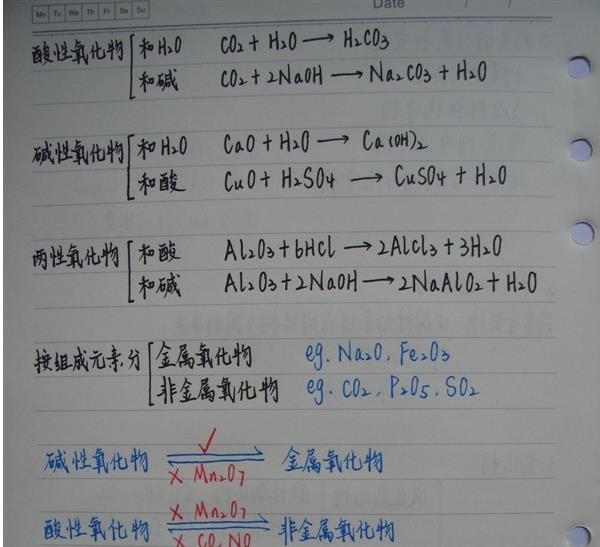 Mo Tu We Th Fr Sa Su
Date / /
酸性氧化物 和H₂O CO₂ + H₂O → H₂CO₃
和碱 CO₂ + 2NaOH → Na₂CO₃ + H₂O
碱性氧化物 和H₂O CaO + H₂O → Ca(OH)₂
和酸 CuO + H₂SO₄ → CuSO₄ + H₂O
两性氧化物 和酸 Al₂O₃ + 6HCl → 2AlCl₃ + 3H₂O
和碱 Al₂O₃ + 2NaOH → 2NaAlO₂ + H₂O
按组成元素分 金属氧化物 eg. Na₂O, Fe₂O₃
非金属氧化物 eg. CO₂, P₂O₅, SO₂
✓
碱性氧化物 ⇌ 金属氧化物
× Mn₂O₇
× Mn₂O₇
酸性氧化物 ⇌ 非金属氧化物
× CO, NO